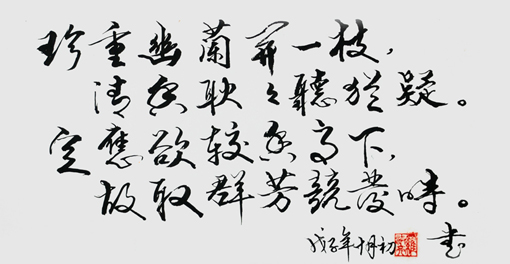 珍重幽蘭開一枝，
清香耿々聽猶疑。
定應欲較香高下，
故取群芳競發時。
戊子年 初 書